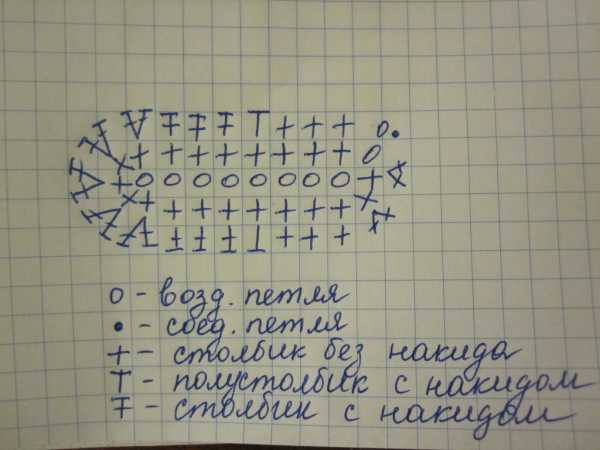 о - возд. петля
• - соед. петля
+ - столбик без накида
Т - полустолбик с накидом
Ŧ - столбик с накидом